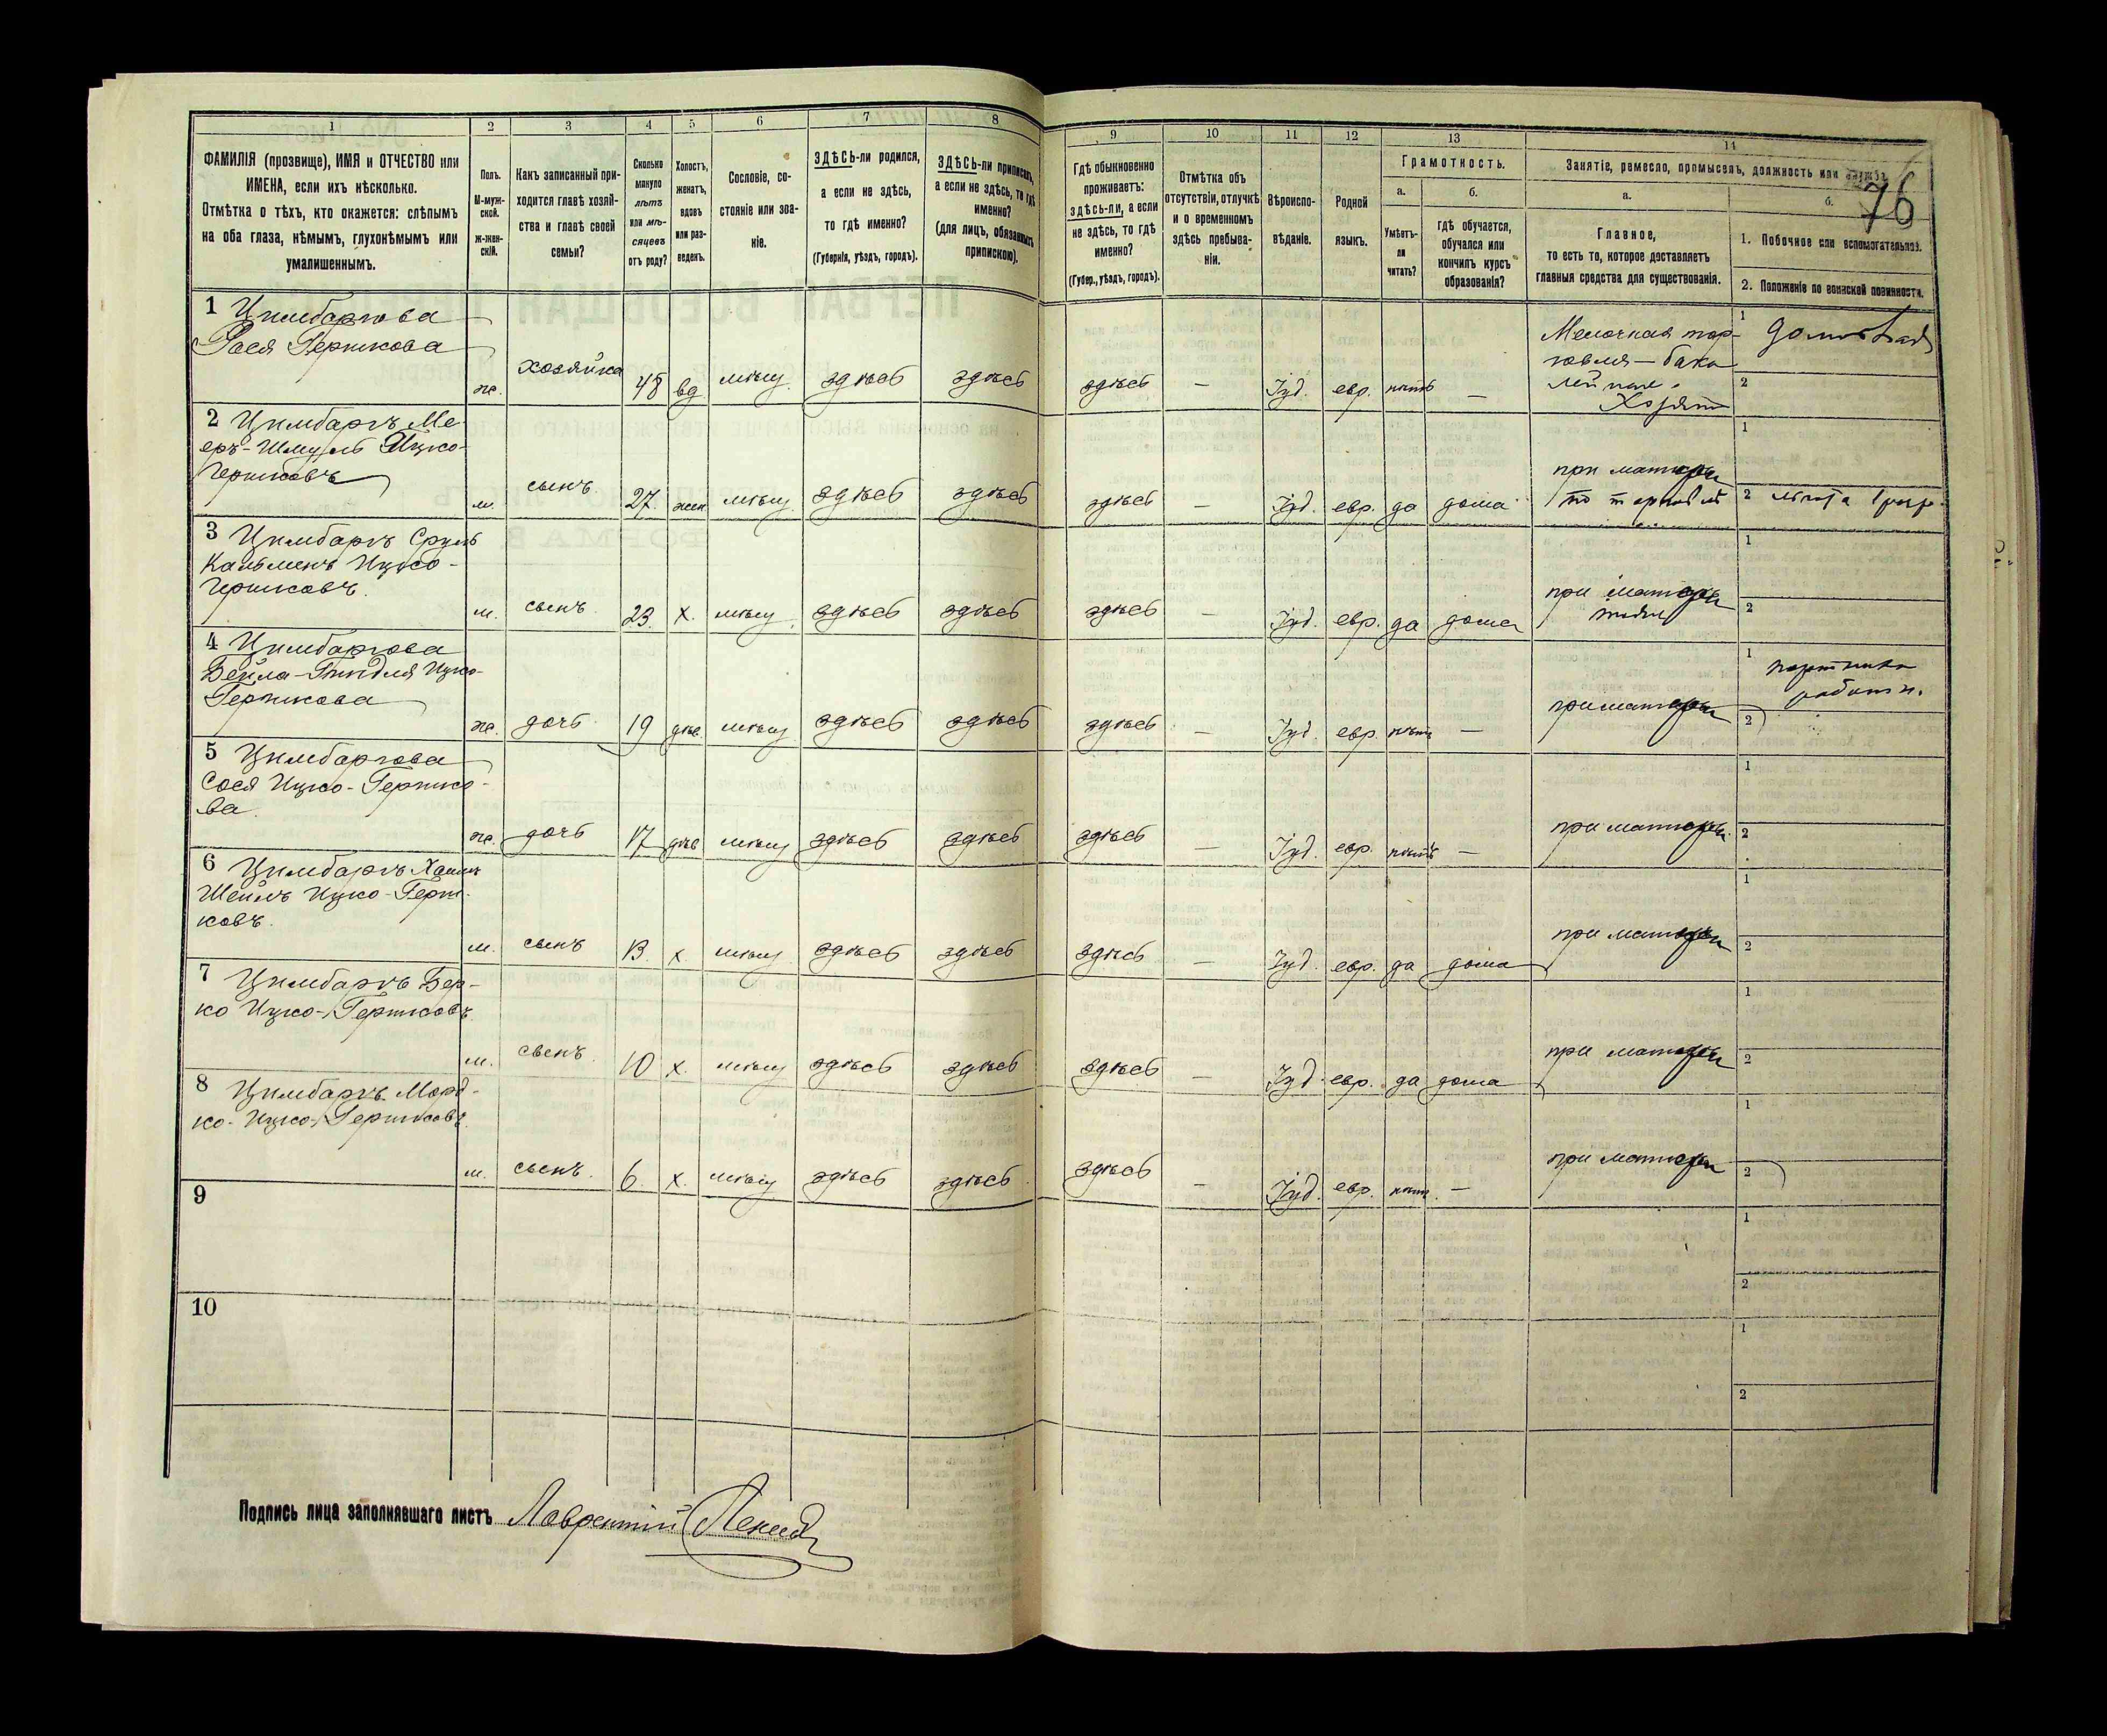 1
2
3
4
5
6
7
8
ФАМИЛІЯ (прозвище), ИМЯ и ОТЧЕСТВО или
ИМЕНА, если ихъ нѣсколько.
Отмѣтка о тѣхъ, кто окажется: слѣпымъ
на оба глаза, нѣмымъ, глухонѣмымъ или
умалишеннымъ.
Полъ.
М-муж-
ской.
ж-жен-
скій.
Какъ записанный при-
ходится главѣ хозяй-
ства и главѣ своей
семьи?
Сколько
минуло
лѣтъ
или мѣ-
сяцевъ
отъ роду?
Холостъ,
женатъ,
вдовъ
или раз-
веденъ.
Сословіе, со-
стояніе или зва-
ніе.
ЗДѢСЬ-ли родился,
а если не здѣсь,
то гдѣ именно?
(Губернія, уѣздъ, городъ).
ЗДѢСЬ-ли приписанъ,
а если не здѣсь, то гдѣ
именно?
(для лицъ, обязанныхъ
припискою).
9
10
11
12
13
14
Гдѣ обыкновенно
проживаетъ:
здѣсь-ли, а если
не здѣсь, то гдѣ
именно?
(Губер., уѣздъ, городъ).
Отмѣтка объ
отсутствіи, отлучкѣ
и о временномъ
здѣсь пребыва-
ніи.
Вѣроиспо-
вѣданіе.
Родной
языкъ.
Грамотность.
а.
б.
Умѣетъ-
ли
читать?
Гдѣ обучается,
обучался или
кончилъ курсъ
образованія?
Занятіе, ремесло, промыселъ, должность или служба.
76
а.
б.
Главное,
то есть то, которое доставляетъ
главныя средства для существованія.
1. Побочное или вспомогательное.
2. Положеніе по воинской повинности.
1 Цимбаргова
Рося Гершкова
ж. хозяйка 48 вд мѣщ. здѣсь здѣсь здѣсь — Іуд. евр. нѣтъ —
Мелочная тор-
говля — бака
лейная.
Хозяин
1
2
2 Цимбаргъ Ме
еръ-Шмуль Ицко-
Гершковъ
м. сынъ 27 жен. мѣщ. здѣсь здѣсь здѣсь — Іуд. евр. да дома
при матери
по торговлѣ
1
2
3 Цимбаргъ Сруль
Кальменъ Ицко-
Гершковъ.
м. сынъ. 23. х. мѣщ. здѣсь здѣсь здѣсь — Іуд. евр. да дома
при матери
1
2
4 Цимбаргова
Бейла-Гиндля Ицко-
Гершкова
ж. дочь 19 дѣв. мѣщ здѣсь здѣсь здѣсь — Іуд. евр. нѣтъ —
при матери
1 портниха
работн.
2
5 Цимбаргова
Сося Ицко-Гершко-
ва.
ж. дочь 17 дѣв мѣщ здѣсь здѣсь здѣсь — Іуд. евр. нѣтъ —
при матери.
1
2
6 Цимбаргъ Хаимъ
Шейлъ Ицко-Герш-
ковъ.
м. сынъ 13. х. мѣщ здѣсь здѣсь здѣсь — Іуд. евр. да дома
при матери
1
2
7 Цимбаргъ Бер-
ко Ицко-Гершковъ.
м. сынъ. 10 х. мѣщ здѣсь здѣсь здѣсь — Іуд. евр. да дома
при матери
1
2
8 Цимбаргъ Морд-
ко-Ицко-Гершковъ.
м. сынъ. 6. х. мѣщ здѣсь здѣсь здѣсь — Іуд. евр. нѣтъ. —
при матери
1
2
9
1
2
10
1
2
Подпись лица заполнявшаго листъ Лаврентій